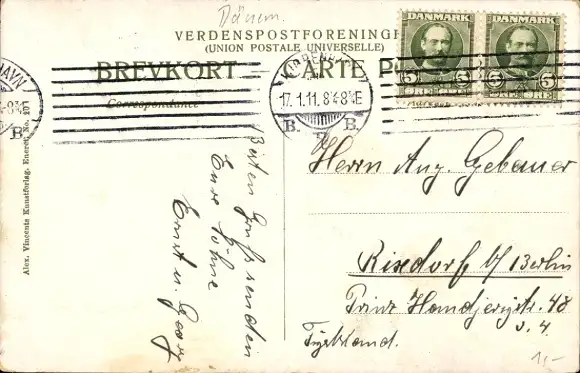 Dänem.
VERDENSPOSTFORENING
(UNION POSTALE UNIVERSELLE)
BREVKORT — CARTE P
Correspondance
DANMARK DANMARK
5 5 5 5
17.1.11. 8¼-8¾E
B. B.
B.
Alex. Vincents Kunstforlag, Eneret No.
Besten Gruss senden
Eure Söhne
Ernst u. Georg
Herrn Aug. Gebauer
Rixdorf b/ Berlin
Prinz Handjerystr. 48
v. 4.
Tyskland.
1,-